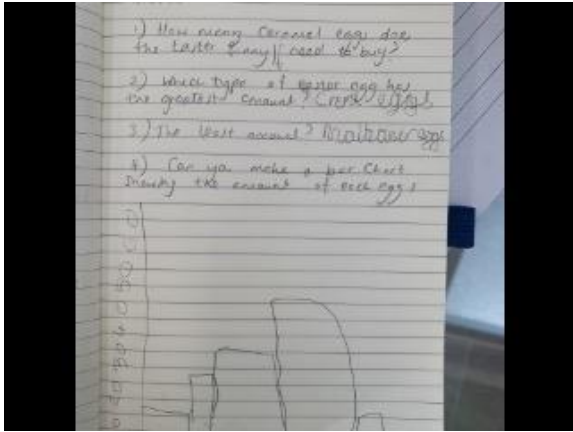 1) How many Caramel egg does
the Easter Bunny need to buy?
2) which type of easter egg has
the greatest amount? Creme eggs
3) The least amount? eggs
4) Can you make a bar Chart
Showing the amount of each eggs